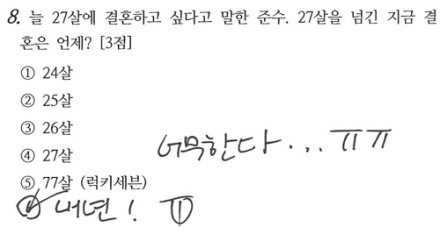 8. 늘 27살에 결혼하고 싶다고 말한 준수. 27살을 넘긴 지금 결
혼은 언제? [3점]
① 24살
② 25살
③ 26살
④ 27살
⑤ 77살 (럭키세븐)
너무한다... ㅠㅠ
⑥ 내년! ㅠ